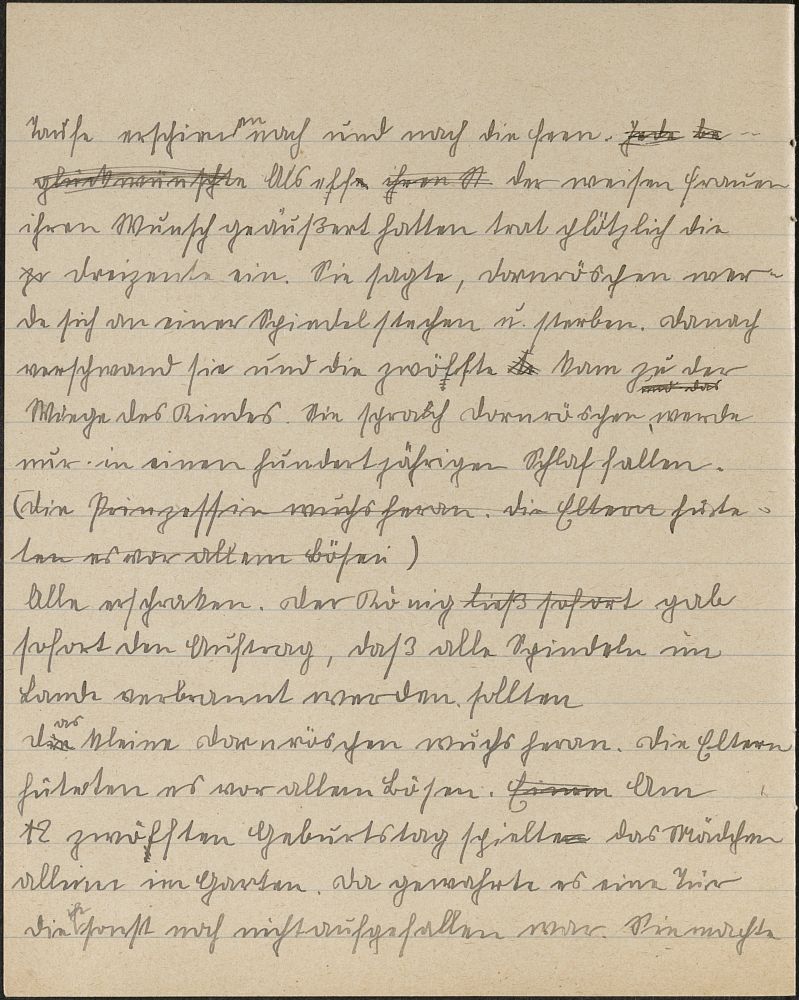 Taufe erschienen nach und nach die Feen. Jede be-
glückwünschte Als elfe ihren St der weisen Frauen
ihren Wunsch geäußert hatten trat plötzlich die
dreizente ein. Sie sagte, Dornröschen wer-
de sich an einer Spindel stechen u. sterben. Danach
verschwand sie und die zwölfte kam zu der
und das
Wiege des Kindes. Sie sprach Dornröschen werde
nur in einen hundertjährigen Schlaf fallen.
(Die Prinzessin wuchs heran. Die Eltern hüte-
ten es vor allem Bösen)
Alle erschraken. Der König ließ sofort gab
sofort den Auftrag, daß alle Spindeln im
Lande verbrannt werden sollten
Das kleine Dornröschen wuchs heran. Die Eltern
hüteten es vor allem Bösen. Einem Am
12 zwölften Geburtstag spielte das Mädchen
allein im Garten. Da gewahrte es eine Tür
die ihr sonst noch nicht aufgefallen war. Sie machte